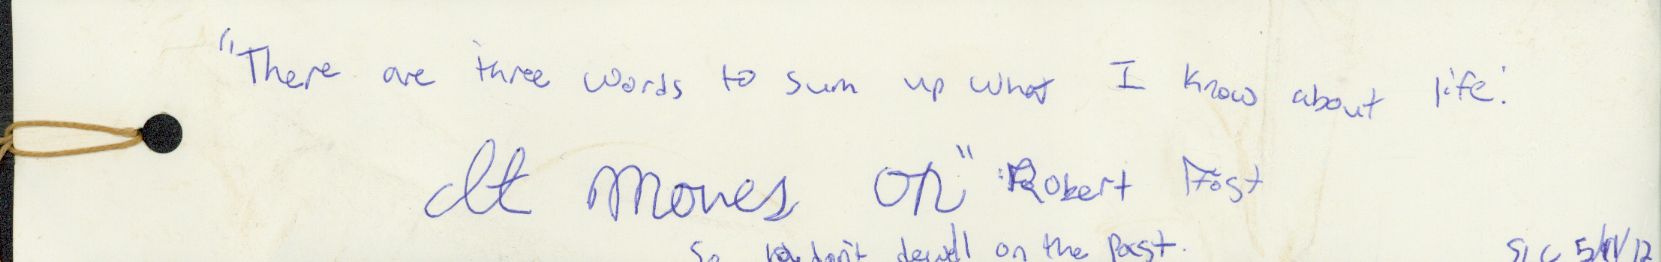 "There are three words to sum up what I know about life:
It moves on" Robert Frost
So don't dwell on the past. SLC